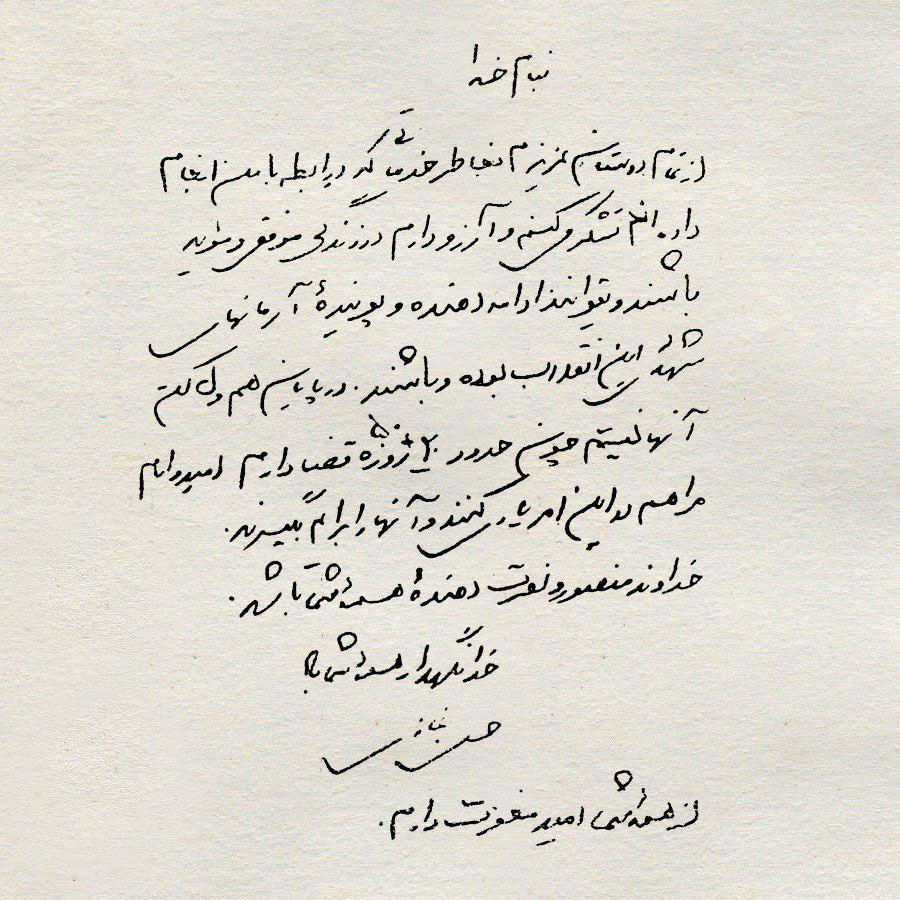 بنام خدا
از تمام دوستان عزیزم بخاطر خدماتی که در رابطه با من انجام
داده‌اند تشکر می‌کنم و آرزو دارم در زندگی موفق و مؤید
باشند و بتوانند ادامه دهنده و پویندۀ آرمانهای
شهدای این انقلاب بوده و باشند. در پایان هم
آنها نیستم چون حدود روزه قضا دارم امیدوارم
مرا هم در این امر یاری کنند و آنها را برایم بگیرند.
خداوند منصور و نصرت دهندۀ همه شما باشد.
خدا نگهدار همه شما
حسن
از همه شما امید مغفرت دارم.